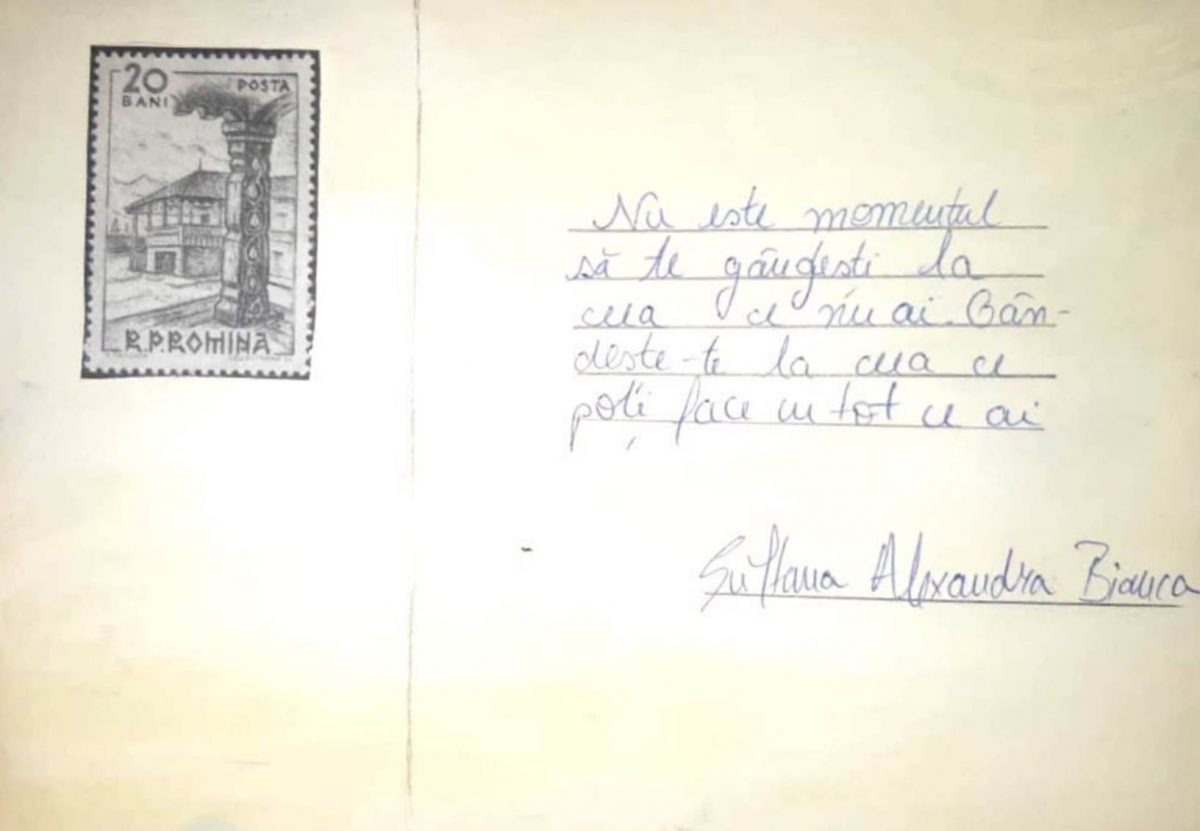 20
BANI
POSTA
R.P.ROMINA
Nu este momentul
să te gândești la
ceea ce nu ai. Gân-
dește-te la ceea ce
poți face cu tot ce ai
Sultana Alexandra Bianca